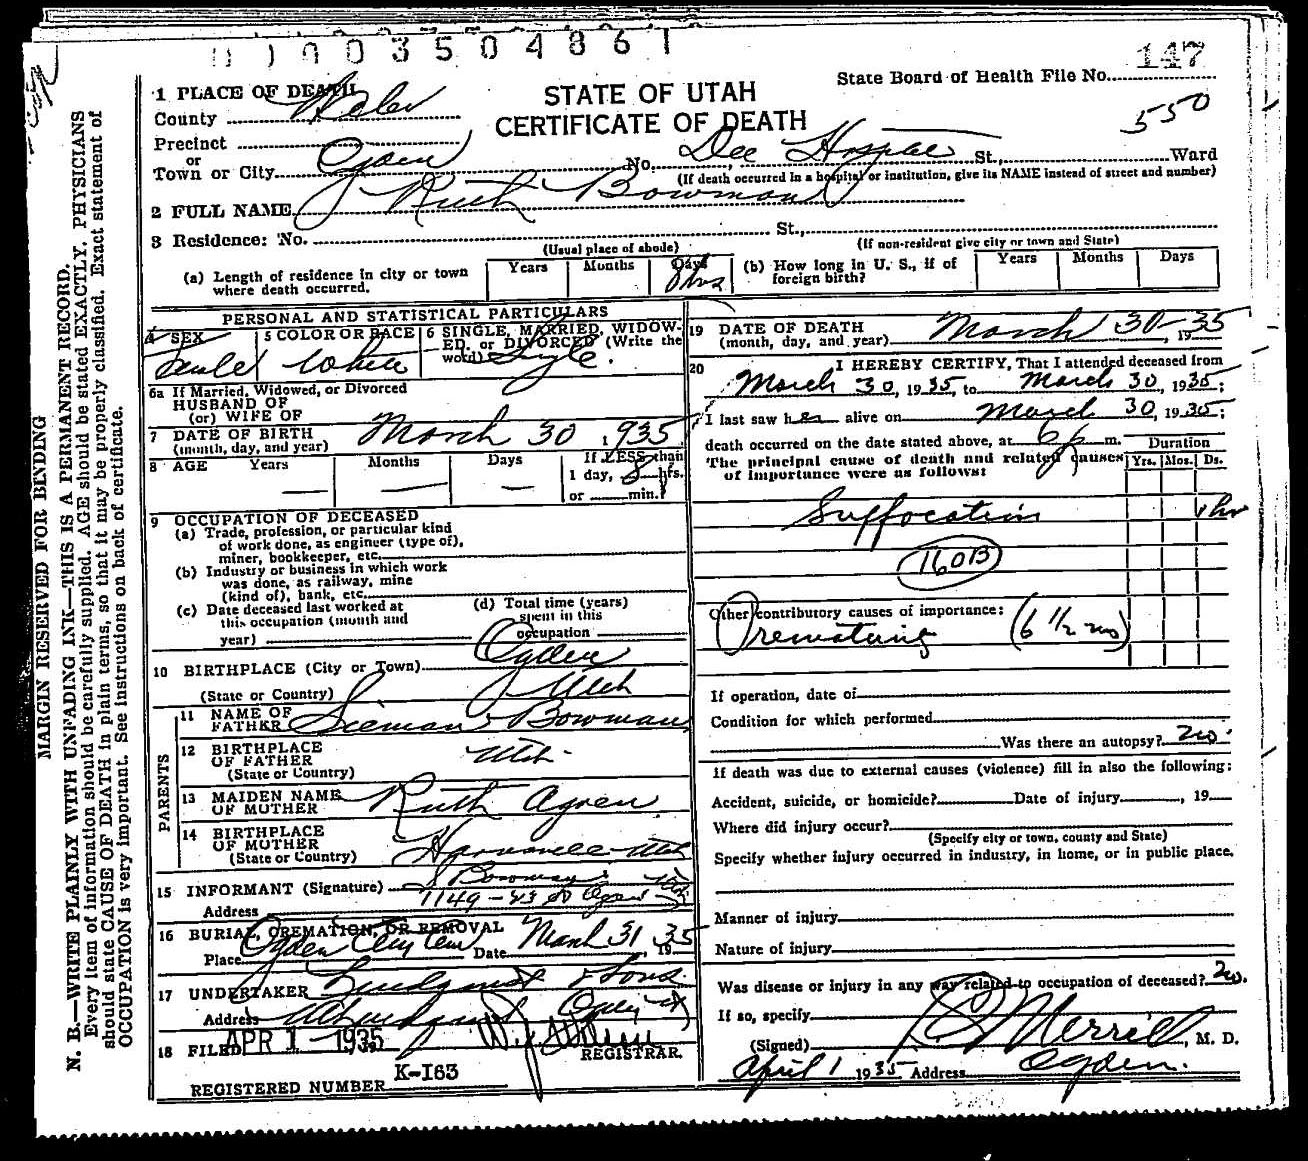 0100350486 1
State Board of Health File No. 147
550
STATE OF UTAH
CERTIFICATE OF DEATH
1 PLACE OF DEATH
County Weber
Precinct
or
Town or City Ogden No. Dee Hospital St., Ward
(If death occurred in a hospital or institution, give its NAME instead of street and number)
2 FULL NAME Ruth Bowman
3 Residence: No. St.,
(Usual place of abode) (If non-resident give city or town and State)
(a) Length of residence in city or town where death occurred. Years Months Days 8 hrs
(b) How long in U. S., if of foreign birth? Years Months Days
PERSONAL AND STATISTICAL PARTICULARS
4 SEX Female
5 COLOR OR RACE White
6 SINGLE, MARRIED, WIDOWED, or DIVORCED (Write the word) Single.
6a If Married, Widowed, or Divorced
HUSBAND OF
(or) WIFE OF
7 DATE OF BIRTH March 30, 1935
(month, day, and year)
8 AGE Years Months Days If LESS than
1 day, 8 hrs.
or min.
9 OCCUPATION OF DECEASED
(a) Trade, profession, or particular kind
of work done, as engineer (type of),
miner, bookkeeper, etc.
(b) Industry or business in which work
was done, as railway, mine
(kind of), bank, etc.
(c) Date deceased last worked at
this occupation (month and
year)
(d) Total time (years)
spent in this
occupation
10 BIRTHPLACE (City or Town) Ogden
(State or Country) Utah
PARENTS
11 NAME OF FATHER Bowman
12 BIRTHPLACE OF FATHER Utah
(State or Country)
13 MAIDEN NAME OF MOTHER Ruth Agren
14 BIRTHPLACE OF MOTHER Utah
(State or Country)
15 INFORMANT (Signature) Bowman
Address 1149-43 Ogden
16 BURIAL, CREMATION, OR REMOVAL
Place Ogden City Cem Date March 31, 1935
17 UNDERTAKER Lindquist & Sons.
Address Ogden
18 FILED APR 1 - 1935
REGISTRAR.
REGISTERED NUMBER K-163
19 DATE OF DEATH March 30-1935
(month, day, and year)
20 I HEREBY CERTIFY, That I attended deceased from
March 30, 1935, to March 30, 1935;
I last saw her alive on March 30, 1935;
death occurred on the date stated above, at 6 p m.
The principal cause of death and related causes
of importance were as follows:
Duration
Yrs. Mos. Ds.
Suffocation 1 hr
160B
Other contributory causes of importance:
Prematurity (6 1/2 mo)
If operation, date of
Condition for which performed
Was there an autopsy? no.
If death was due to external causes (violence) fill in also the following:
Accident, suicide, or homicide? Date of injury , 19
Where did injury occur?
(Specify city or town, county and State)
Specify whether injury occurred in industry, in home, or in public place.
Manner of injury
Nature of injury
Was disease or injury in any way related to occupation of deceased? no.
If so, specify
(Signed) Merrill, M. D.
April 1 1935 Address Ogden.
MARGIN RESERVED FOR BINDING
N. B.—WRITE PLAINLY WITH UNFADING INK—THIS IS A PERMANENT RECORD.
Every item of information should be carefully supplied. AGE should be stated EXACTLY. PHYSICIANS
should state CAUSE OF DEATH in plain terms, so that it may be properly classified. Exact statement of
OCCUPATION is very important. See instructions on back of certificate.